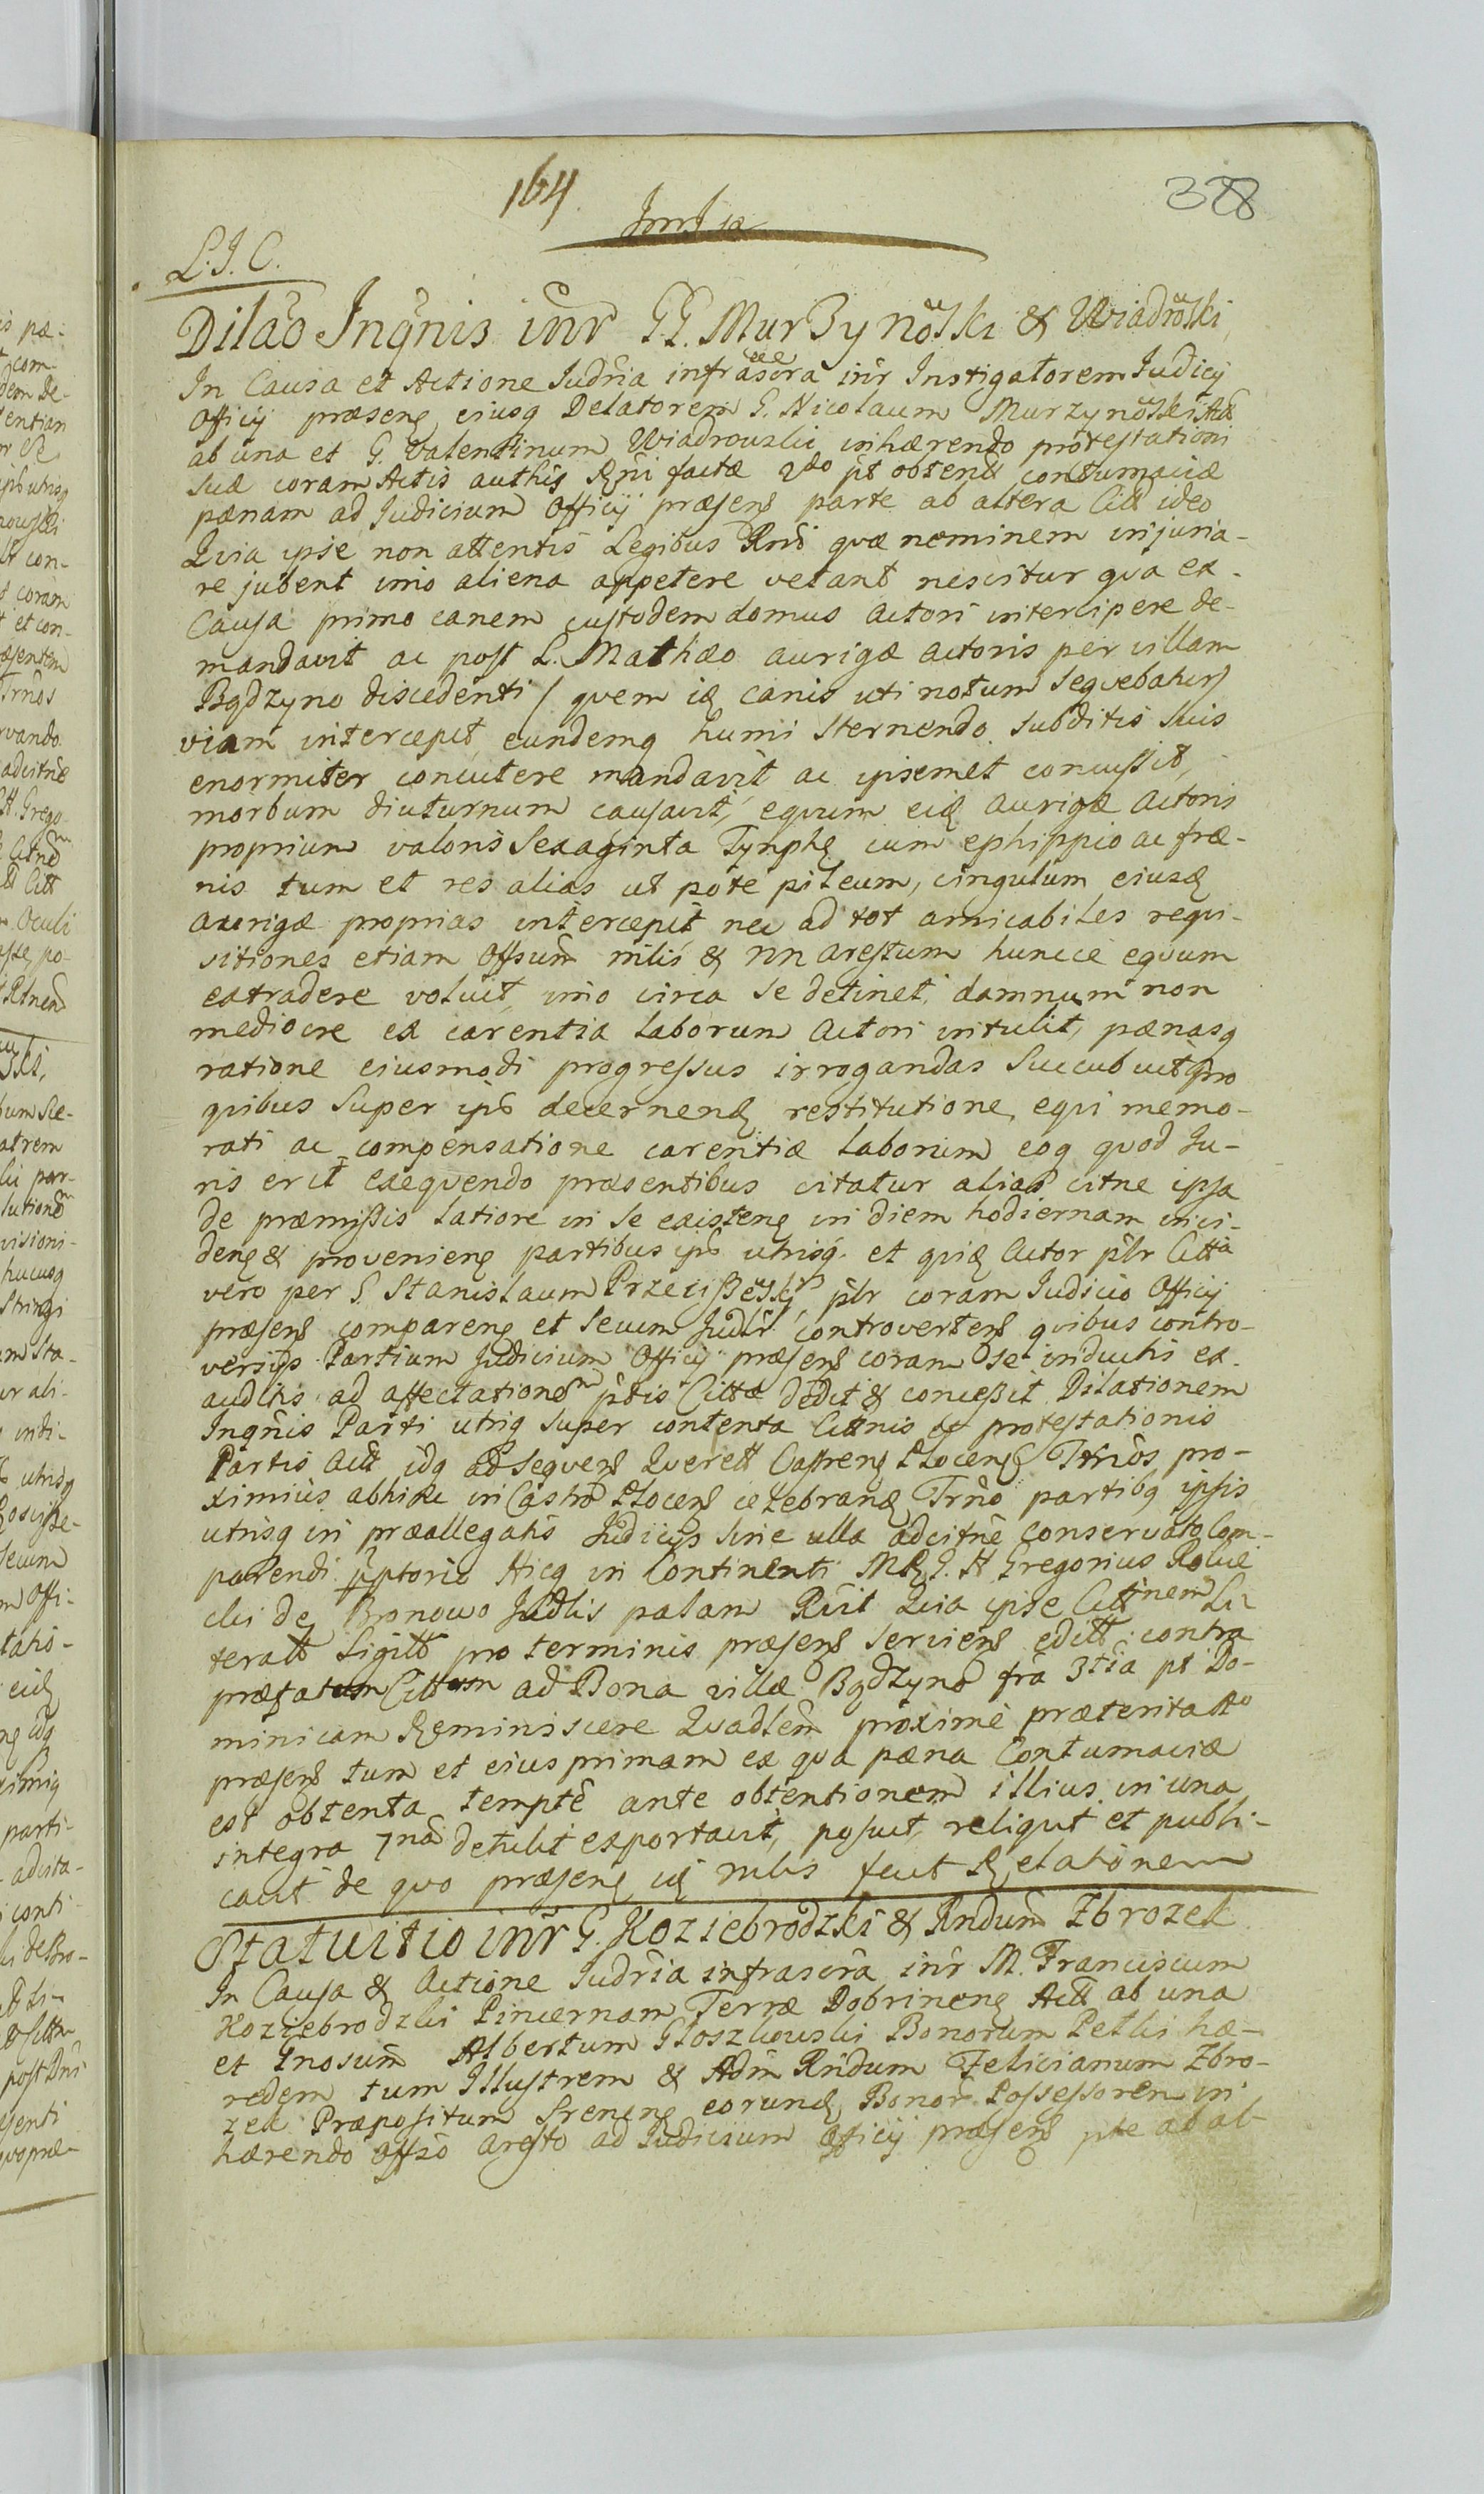 164.
388
L. J. C.
Dilao Inqnis inr GG. Murzynowski & Wiadrowski
In Causa et Actione Iudria infrascra inr Instigatorem Iudicij
Officij præsens eiusq Delatorem G. Nicolaum Murzynowski Act
ab una et G. Valentinum Wiadrowski inhærendo protestationi
suæ coram Actis authis Rgni factæ 2do pt obtend contumaciæ
pænam ad Iudicium Officij præsens parte ab altera Citt ideo
Quia ipse non attentis Legibus Rni quæ neminem injuria-
re jubent imo aliena appetere vetant nescitur qua ex
Causa primo canem custodem domus Actori intercipere de-
mandavit ac post L. Mathæo aurigæ actoris per villam
Bądzyno discedenti / quem is canis uti notum sequebatur /
viam intercepit eundemq humi sternendo subditis suis
enormiter concutere mandavit ac ipsemet concussit,
morbum diuturnum causavit, equum eid aurigæ Actoris
proprium valoris sexaginta Tymphs cum ephippio ac fræ-
nis tum et res alias ut pote pileum, cingulum eiusd
aurigæ proprias intercepit nec ad tot amicabiles requi-
sitiones etiam Offsum nilis & nn arestum huncce equum
extradere voluit, imo circa se detinet, damnum non
mediocre ex carentia laborum Actori intulit, pænasq
ratione eiusmodi progressus irrogandas succubuit pro
quibus super ips decernend restitutione equi memo-
rati ac compensatione carentiæ laborum eoq quod Iu-
ris erit exequendo præsentibus citatur alias citne ipsa
de præmissis latiore in se existens in diem hodiernam inci-
dens & proveniens partibus ips utrisq. et quid Actor plr Citta
vero per G. Stanislaum Przeciszewski plr coram Iudicio Officij
præsens comparens et secum Iudlr controvertens quibus contro-
versijs Partium Iudicium Officij præsens coram se inductis ex-
auditis ad affectationem ptis Cittæ dedit & concessit Dilationem
Inqnis Parti utriq super contenta Cittnis et protestationis
Partis Act idq ad sequens Querell Castrens Plocens Trnos pro-
ximius abhinc in Castro Plocens celebrand Trno partibq ipsis
utrisq in præallegatis Iudicijs sine ulla adcitne conservato Com-
parendi pptorio Hicq in Continenti MRG. H Gregorius Rolie
cki de Bronowo Iudlis palam Rcit Quia ipse Cittnem Li
teratt Sigitt pro terminis præsens serviens editt contra
præfatum Cittum ad Bona villæ Bądzyno fra 3tia pt Do-
minicam Reminiscere Quadlem proxime præterita Ao
præsens tum et eius primam ex qua pæna Contumaciæ
est obtenta tempte ante obtentionem illius in una
integra 7na detulit exportavit, posuit, reliquit et publi-
cavit de quo præsens is nilis fecit Relationem
Statuitio inr G. Koziebrodzki & Rndum Zbrozek
In Causa & Actione Iudria infrascra inr M. Franciscum
Koziebrodzki Pincernam Terræ Dobrinens Act ab una
et Gnosum Albertum Głoszkowski Bonorum Petki hæ-
redem tum Illustrem & Adm Rndum Felicianum Zbro-
zek Præpositum Srenens eorund Bonor Possessorem in
hærendo Offso Aresto ad Iudicium Officij præsens pte ab al-